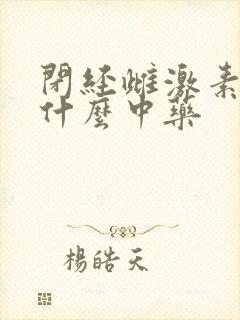 閉経雌激素
什麼中藥
楊皓天